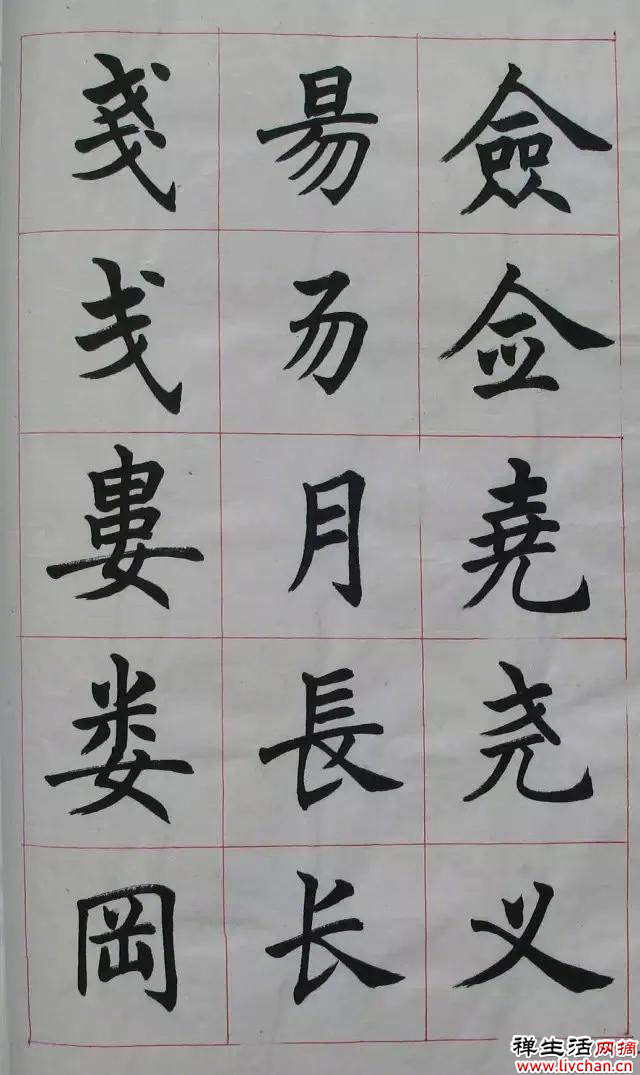 僉佥堯尧义
昜𠃓月長长
戔戋婁娄岡
禅生活网摘
www.livchan.cn